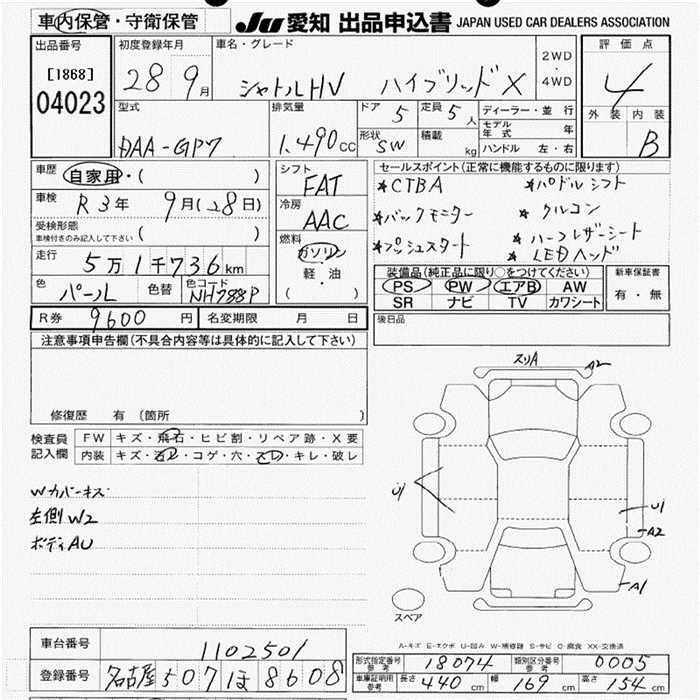 車内保管・守衛保管
JU 愛知 出品申込書 JAPAN USED CAR DEALERS ASSOCIATION
出品番号
[1868]
04023
初度登録年月
28 9月
車名・グレード
シャトルHV ハイブリッドX
2WD
・
4WD
評価点
4
外装 内装
B
型式
DAA-GP7
排気量
1.490cc
ドア 5
定員 5人
形状 SW
積載 kg
ディーラー・並行
モデル年式 年
ハンドル 左・右
車歴
自家用・( )
車検
R3年 9月(28日)
受検形態
車検付きのみ記入して下さい ( )
走行
5万1千736km
色 パール 色替 色コード NH788P
シフト
FAT
冷房
AAC
燃料
ガソリン
軽・油
( )
セールスポイント(正常に機能するものに限ります)
*CTBA *パドルシフト
*バックモニター *クルコン
*プッシュスタート *ハーフレザーシート
*LEDヘッド
装備品(純正品に限り○をつけてください)
PS PW エアB AW
SR ナビ TV カワシート
新車保証書
有・無
R券 9600円 名変期限 月 日
後日品
注意事項申告欄(不具合内容等は具体的に記入して下さい)
修復歴 有 (箇所 )
検査員
記入欄
FW キズ・飛石・ヒビ割・リペア跡・X要
内装 キズ・汚レ・コゲ・穴・スレ・キレ・破レ
Wカバーキズ
左側W2
ボディAU
スリA
A2
U1
A2
A1
スペア
A-キズ E-エクボ U-凹み W-補修跡 S-サビ C-腐食 XX-交換済
車台番号 1102501
登録番号 名古屋507 ほ 8608
形式指定番号 参考 18074
類別区分番号 参考 0005
車庫証明用 参考 長さ 440cm 幅 169cm 高さ 154cm